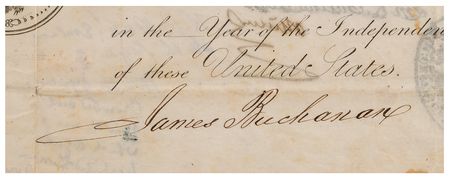 in the Year of the Independen
of these United States.
James Buchanan